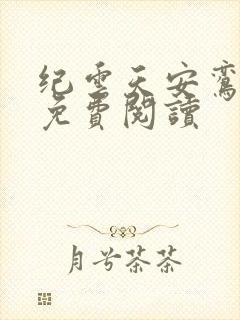 纪云天安鸾
免費閱讀
月兮茶茶